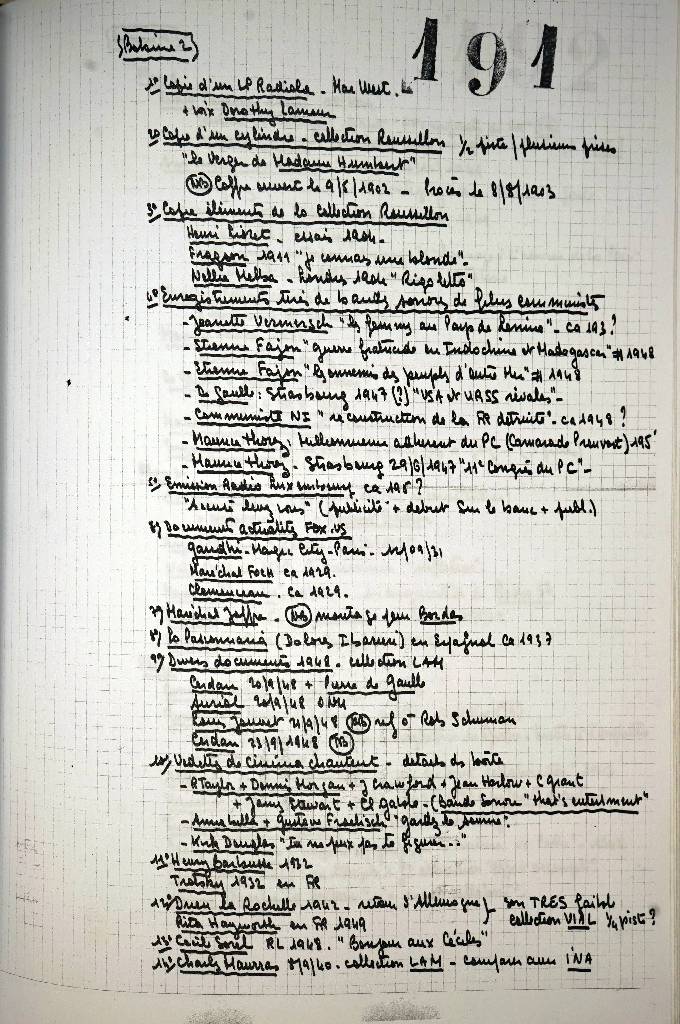 {Bobine 2}
191
1º Copie d'un LP Radiola - Mae West.
+ voix Dorothy Lamour
2º Copie d'un cylindre - collection Roussillon ½ piste / plusieurs prises
"le Verger de Madame Humbert"
(NB) Coffre ouvert le 9/5/1902 - Procès le 8/8/1903
3º Copie éléments de la collection Roussillon
Henri Lioret - essais 1904 -
Fragson 1911 "je connais une blonde" -
Nellie Melba - Londres 1904 "Rigoletto"
4º Enregistrements tirés de bandes sonores de films communistes
- Jeanette Vermersch "les femmes au Pays de Lénine" - ca 193?
- Etienne Fajon "guerre fratricide en Indochine et Madagascar" # 1948
- Etienne Fajon "les ennemis des peuples d'outre Mer" # 1948
- De Gaulle : Strasbourg 1947 (?) "USA et URSS rivales" -
- Communiste NI "reconstruction de la FR détruite" - ca 1948 ?
- Maurice Thorez : adhérent du PC (Camarade Pruvost) 195
- Maurice Thorez - Strasbourg 29/6/1947 "11e Congrès du PC" -
5º Emission Radio Luxembourg ca 195?
"Accusé levez vous" (publicité + début Sur le banc + publ.)
6) Documents actualités FOX-US
Gandhi - Magic City - Paris - 12/09/31
Maréchal Foch ca 1929.
Clemenceau - ca 1929.
7) Maréchal Joffre - (NB) montage pour Bordas
8) La Passionaria (Dolores Ibaruri) en Espagnol ca 1937
9) Divers documents 1948 - collection LAM
Cerdan 20/9/48 + Pierre de Gaulle
Auriol 20/9/48 ONU
Louis Jouvet 21/9/48 (NB) Rob Schuman
Cerdan 23/9/1948 (NB)
10) Vedettes de cinéma chantent - détails ds boîte
- R Taylor + Dennis Morgan + J Crawford + Jean Harlow + C Grant
+ James Stewart + Cl Gable - (Bande Sonore "that's entertment"
- Annabella + Gustave Froelisch "gardez le sourire".
- Kirk Douglas "Tu ne peux pas te figurer..."
11º Henry Barbusse 1932
Trotsky 1932 en FR
12º Drieu la Rochelle 1942 - retour d'Allemagne } son TRES faible
Rita Hayworth en FR 1949 collection VIAL ¼ piste ?
13º Cécile Sorel RL 1948. "Bonjour aux Céciles"
14º Charles Maurras 8/9/40 - collection LAM - comparer avec INA